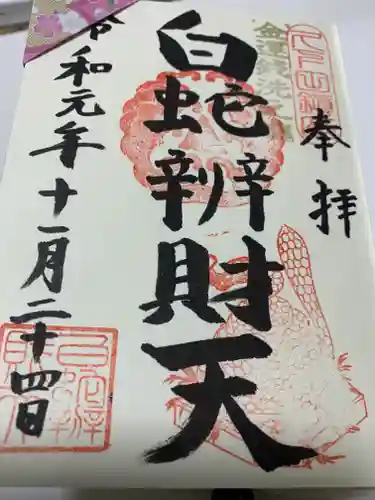 奉拝
白蛇辨財天
令和元年十一月二十四日